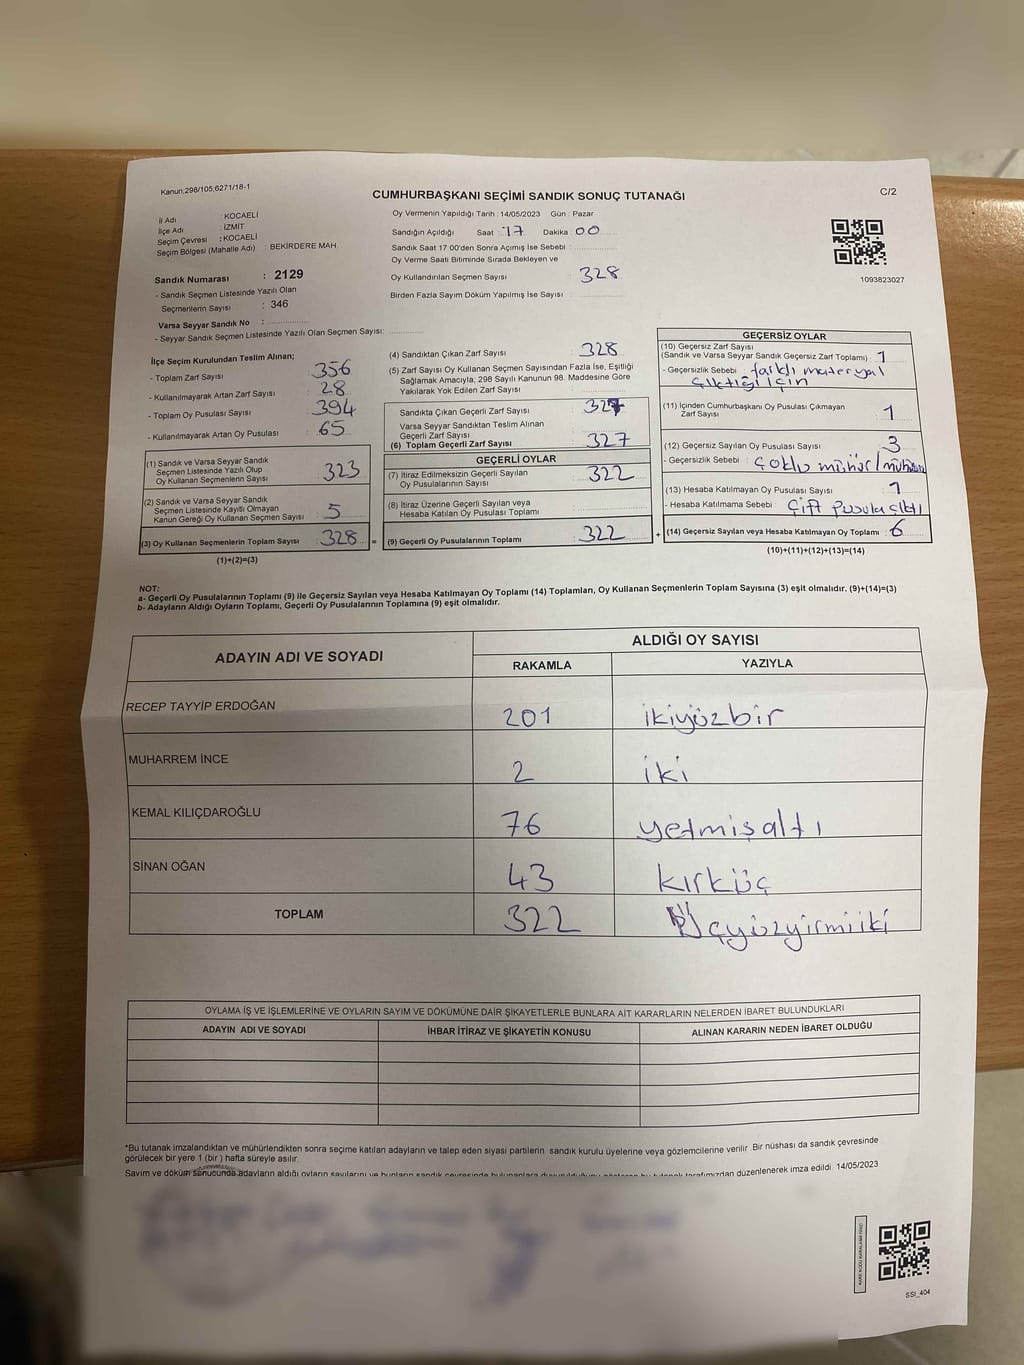 Kanun;298/105,6271/18-1
C/2
CUMHURBAŞKANI SEÇİMİ SANDIK SONUÇ TUTANAĞI
İl Adı : KOCAELİ
İlçe Adı : İZMİT
Seçim Çevresi : KOCAELİ
Seçim Bölgesi (Mahalle Adı) : BEKİRDERE MAH
Sandık Numarası : 2129
- Sandık Seçmen Listesinde Yazılı Olan
Seçmenlerin Sayısı : 346
Varsa Seyyar Sandık No :
- Seyyar Sandık Seçmen Listesinde Yazılı Olan Seçmen Sayısı:
Oy Vermenin Yapıldığı Tarih : 14/05/2023 Gün : Pazar
Sandığın Açıldığı Saat : 17 Dakika 00
Sandık Saat 17 00'den Sonra Açımış İse Sebebi :
Oy Verme Saati Bitiminde Sırada Bekleyen ve
Oy Kullandırılan Seçmen Sayısı : 328
Birden Fazla Sayım Döküm Yapılmış İse Sayısı :
1093823027
İlçe Seçim Kurulundan Teslim Alınan;
- Toplam Zarf Sayısı : 356
- Kullanılmayarak Artan Zarf Sayısı : 28
- Toplam Oy Pusulası Sayısı : 394
- Kullanılmayarak Artan Oy Pusulası : 65
(1) Sandık ve Varsa Seyyar Sandık
Seçmen Listesinde Yazılı Olup
Oy Kullanan Seçmenlerin Sayısı : 323
(2) Sandık ve Varsa Seyyar Sandık
Seçmen Listesinde Kayıtlı Olmayan
Kanun Gereği Oy Kullanan Seçmen Sayısı : 5
(3) Oy Kullanan Seçmenlerin Toplam Sayısı : 328 =
(1)+(2)=(3)
(4) Sandıktan Çıkan Zarf Sayısı : 328
(5) Zarf Sayısı Oy Kullanan Seçmen Sayısından Fazla İse, Eşitliği
Sağlamak Amacıyla; 298 Sayılı Kanunun 98. Maddesine Göre
Yakılarak Yok Edilen Zarf Sayısı :
Sandıkta Çıkan Geçerli Zarf Sayısı : 327
Varsa Seyyar Sandıktan Teslim Alınan
Geçerli Zarf Sayısı :
(6) Toplam Geçerli Zarf Sayısı : 327
GEÇERLİ OYLAR
(7) İtiraz Edilmeksizin Geçerli Sayılan
Oy Pusulalarının Sayısı : 322
(8) İtiraz Üzerine Geçerli Sayılan veya
Hesaba Katılan Oy Pusulası Toplamı :
(9) Geçerli Oy Pusulalarının Toplamı : 322 +
GEÇERSİZ OYLAR
(10) Geçersiz Zarf Sayısı
(Sandık ve Varsa Seyyar Sandık Geçersiz Zarf Toplamı) : 1
- Geçersizlik Sebebi : farklı materyal
çıktığı için
(11) İçinden Cumhurbaşkanı Oy Pusulası Çıkmayan
Zarf Sayısı : 1
(12) Geçersiz Sayılan Oy Pusulası Sayısı : 3
- Geçersizlik Sebebi : çoklu mühür /
(13) Hesaba Katılmayan Oy Pusulası Sayısı : 1
- Hesaba Katılmama Sebebi : çift pusula çıktı
(14) Geçersiz Sayılan veya Hesaba Katılmayan Oy Toplamı : 6
(10)+(11)+(12)+(13)=(14)
NOT:
a- Geçerli Oy Pusulalarının Toplamı (9) ile Geçersiz Sayılan veya Hesaba Katılmayan Oy Toplamı (14) Toplamları, Oy Kullanan Seçmenlerin Toplam Sayısına (3) eşit olmalıdır. (9)+(14)=(3)
b- Adayların Aldığı Oyların Toplamı, Geçerli Oy Pusulalarının Toplamına (9) eşit olmalıdır.
ADAYIN ADI VE SOYADI
ALDIĞI OY SAYISI
RAKAMLA YAZIYLA
RECEP TAYYİP ERDOĞAN 201 ikiyüzbir
MUHARREM İNCE 2 iki
KEMAL KILIÇDAROĞLU 76 yetmişaltı
SİNAN OĞAN 43 kırküç
TOPLAM 322 Üçyüzyirmiiki
OYLAMA İŞ VE İŞLEMLERİNE VE OYLARIN SAYIM VE DÖKÜMÜNE DAİR ŞİKAYETLERLE BUNLARA AİT KARARLARIN NELERDEN İBARET BULUNDUKLARI
ADAYIN ADI VE SOYADI İHBAR İTİRAZ VE ŞİKAYETİN KONUSU ALINAN KARARIN NEDEN İBARET OLDUĞU
*Bu tutanak imzalandıktan ve mühürlendikten sonra seçime katılan adayların ve talep eden siyasi partilerin sandık kurulu üyelerine veya gözlemcilerine verilir. Bir nüshası da sandık çevresinde
görülecek bir yere 1 (bir ) hafta süreyle asılır.
Sayım ve döküm sonucunda adayların aldığı oyların sayılarını ve bunların sandık çevresinde bulunanlara duyurulduğunu gösteren bu tutanak tarafımızdan düzenlenerek imza edildi. 14/05/2023
SSI_404